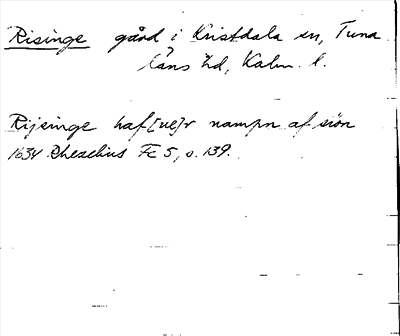 Risinge gård i Kristdala sn, Tuna
läns hd, Kalm. l.
Rijsinge haf[ue]r nampn af siön
1634 Rhezelius Fc 5, s. 139.